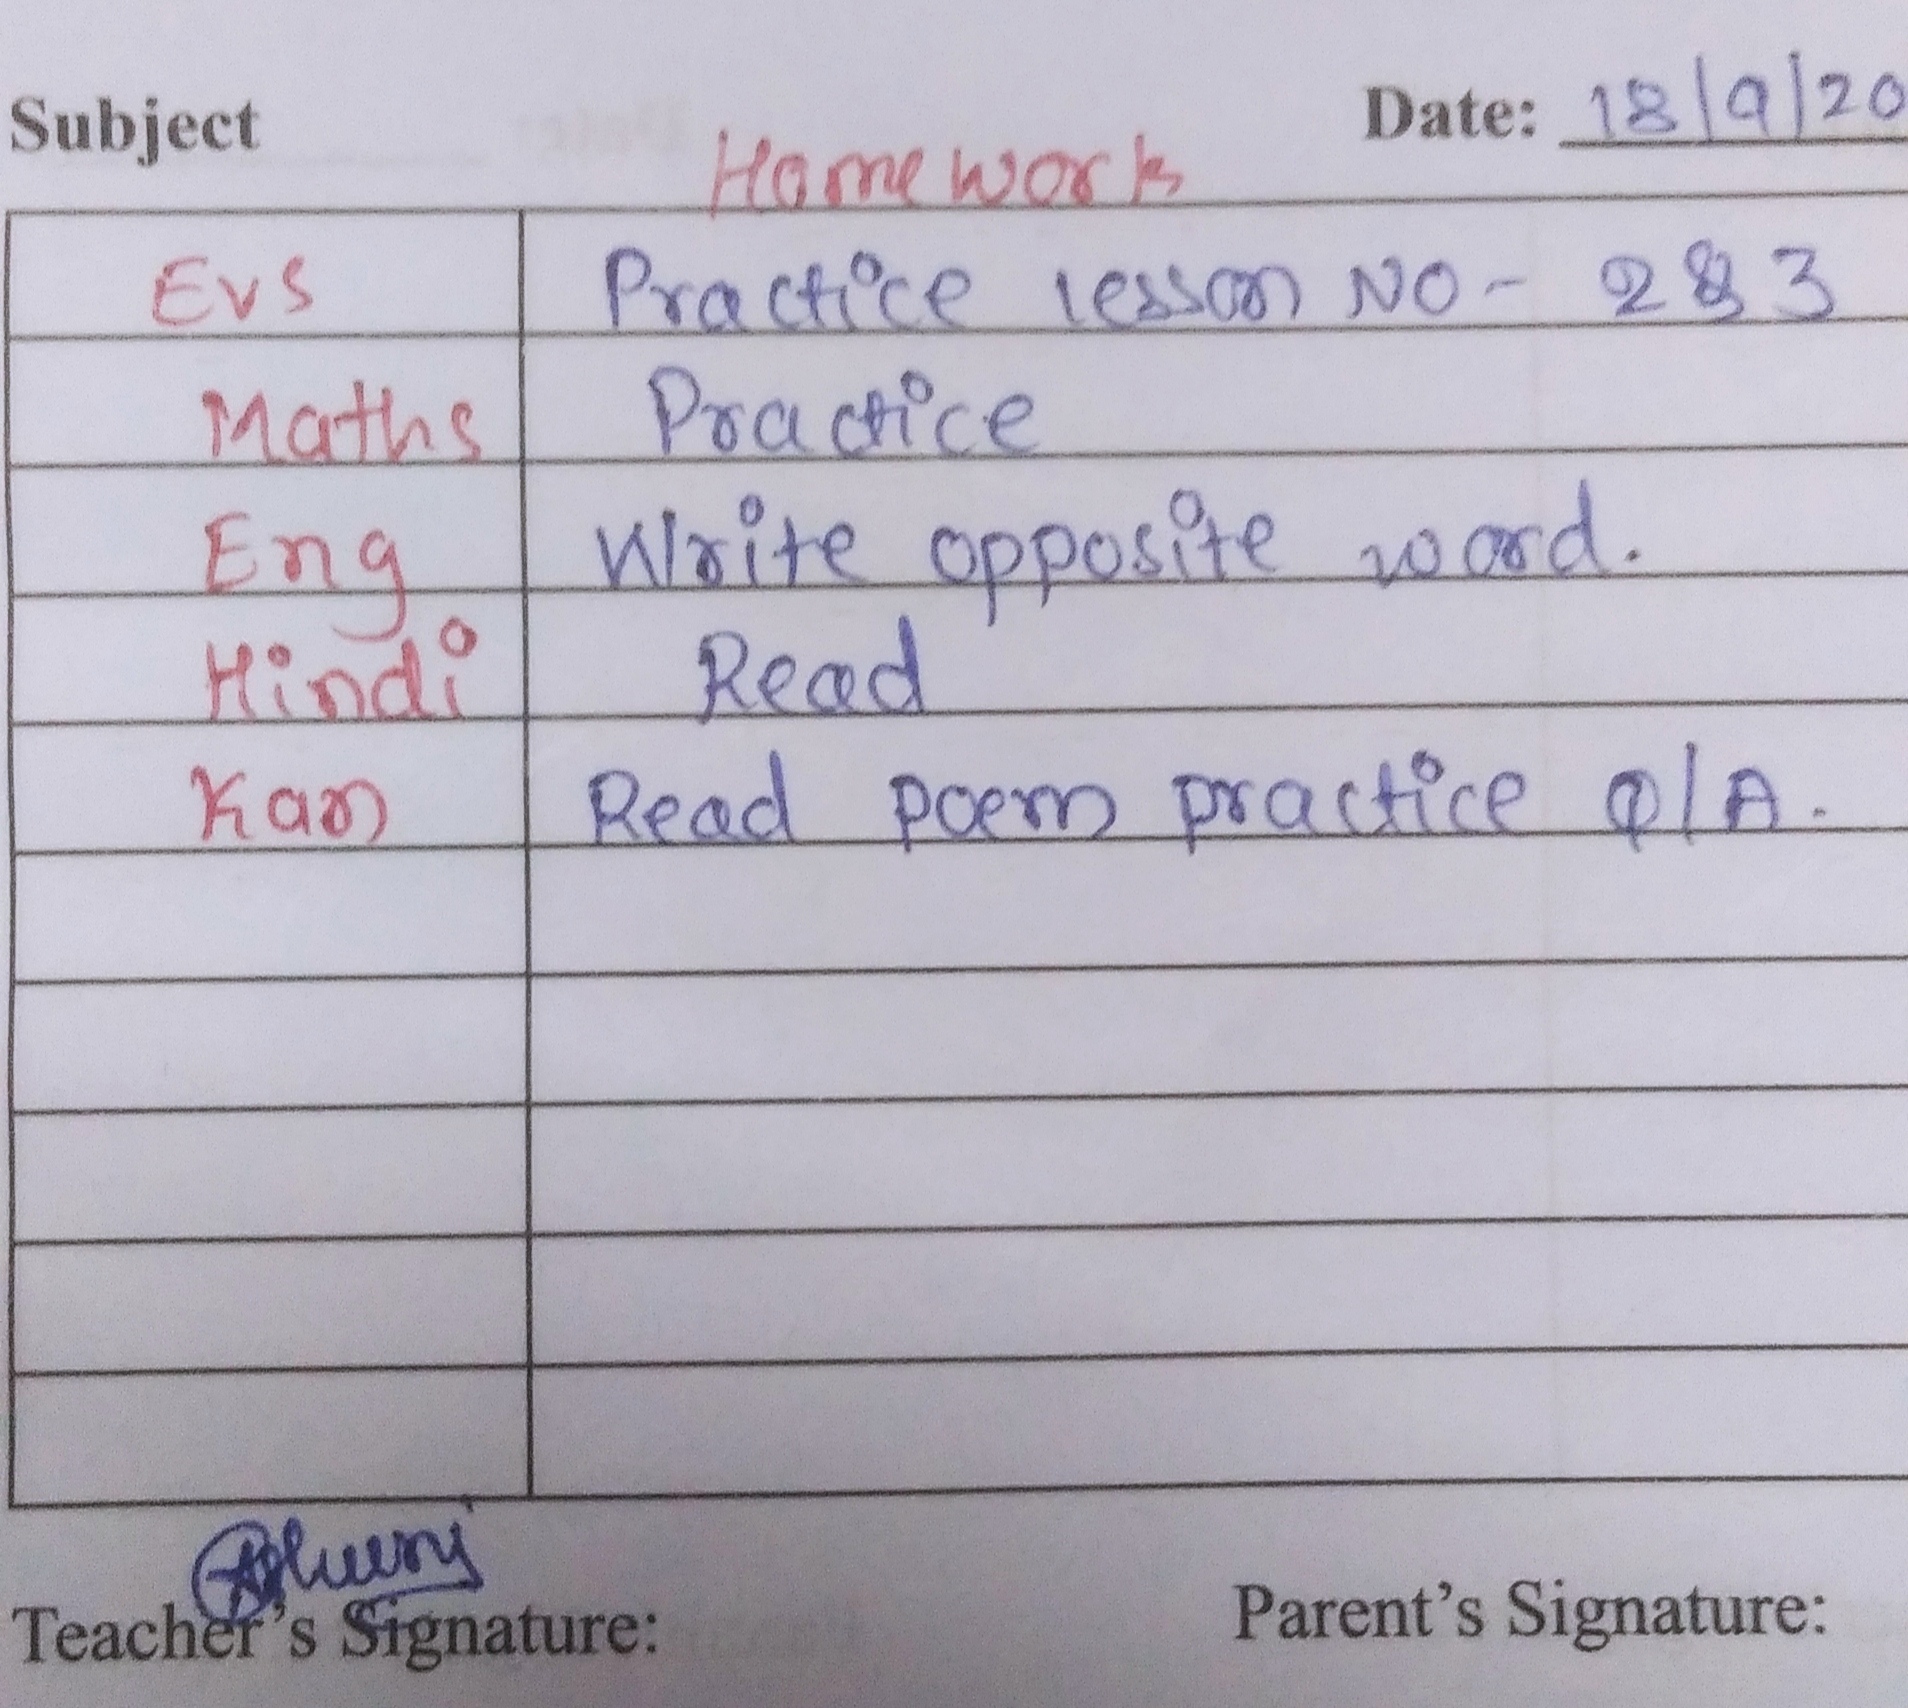 Subject Date: 18/9/20
Homework
Evs Practice lesson NO- 2 & 3
Maths Practice
Eng Write opposite word.
Hindi Read
Kan Read poem practice Q/A.
Teacher's Signature: Parent's Signature: